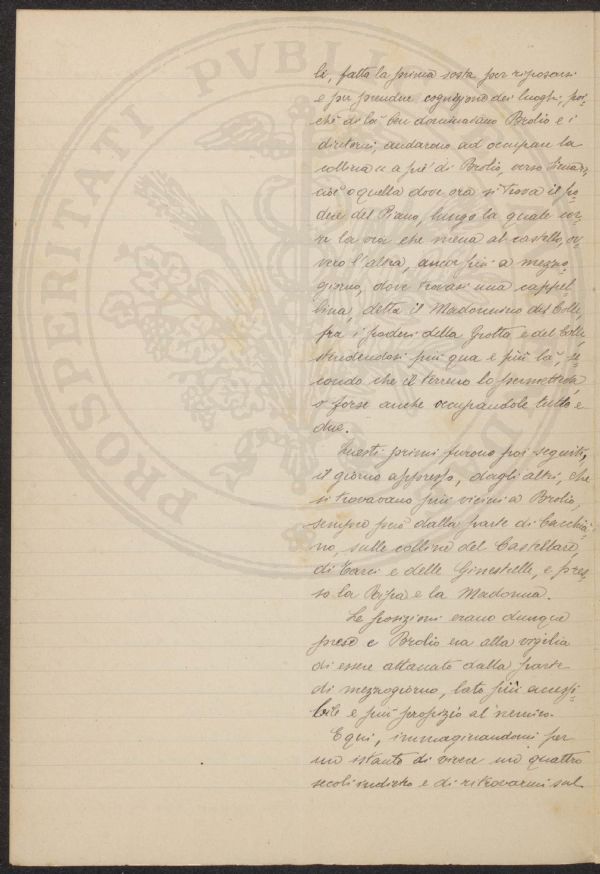 PROSPERITATI PVBLICAE
li, fatta la prima sosta per riposarsi
e per prendere cognizione dei luoghi, poi-
chè di là ben dominavano Brolio e i
dintorni, andarono ad occupare la
collina a a piè di Brolio, verso Siena,
cioè o quella dove ora si trova il po-
dere del Piano, lungo la quale cor-
re la via che mena al castello, ov-
vero l'altra, ancor più a mezzo-
giorno, dove trovasi una cappel-
lina, detta il Madonnino del Colle,
fra i poderi della Grotta e del Colle,
stendendosi più qua e più là, se-
condo che il terreno lo permetteva,
o forse anche occupandole tutte e
due.
Questi primi furono poi seguiti,
il giorno appresso, dagli altri, che
si trovavano più vicini a Brolio,
sempre però dalla parte di Cacchia-
no, sulle colline del Castellare,
di Tarci e delle Ginestrelle, e pres-
so la Ripa e la Madonna.
Le posizioni erano dunque
prese e Brolio era alla vigilia
di essere attaccato dalla parte
di mezzogiorno, lato più accessi-
bile e più propizio al nemico.
E qui, immaginandomi per
un istante di vivere un quattro
secoli indietro e di ritrovarmi sul